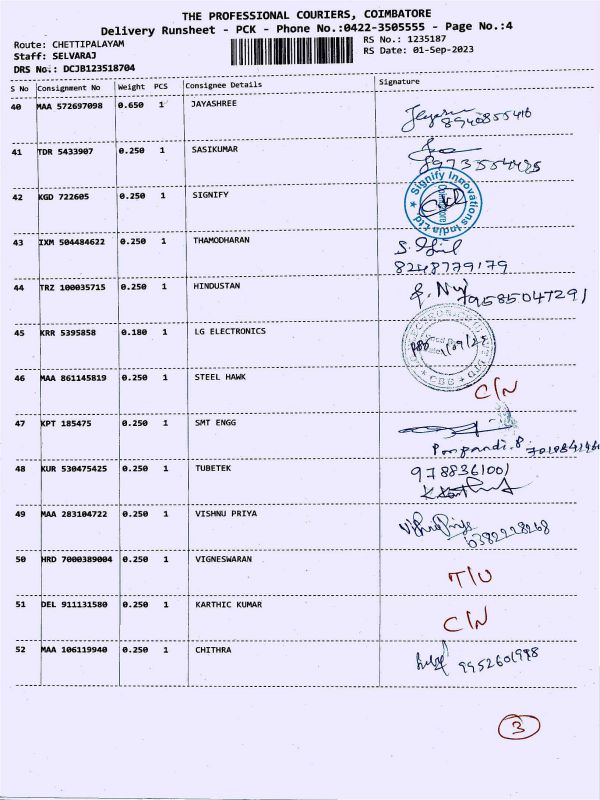 THE PROFESSIONAL COURIERS, COIMBATORE
Delivery Runsheet - PCK - Phone No.:0422-3505555 - Page No.:4
Route: CHETTIPALAYAM RS No.: 1235187
Staff: SELVARAJ RS Date: 01-Sep-2023
DRS No.: DCJB123518704
S No Consignment No Weight PCS Consignee Details Signature
40 MAA 572697098 0.650 1 JAYASHREE
8940855416
41 TDR 5433907 0.250 1 SASIKUMAR
42 KGD 722605 0.250 1 SIGNIFY
Signify Innovations India Ltd
Coimbatore
43 IXM 504484622 0.250 1 THAMODHARAN
8248779179
44 TRZ 100035715 0.250 1 HINDUSTAN
9585047291
45 KRR 5395858 0.180 1 LG ELECTRONICS
46 MAA 861145819 0.250 1 STEEL HAWK C/N
47 KPT 185475 0.250 1 SMT ENGG
48 KUR 530475425 0.250 1 TUBETEK 9788361001
49 MAA 283104722 0.250 1 VISHNU PRIYA
50 HRD 7000389004 0.250 1 VIGNESWARAN T/U
51 DEL 911131580 0.250 1 KARTHIC KUMAR C/N
52 MAA 106119940 0.250 1 CHITHRA
3